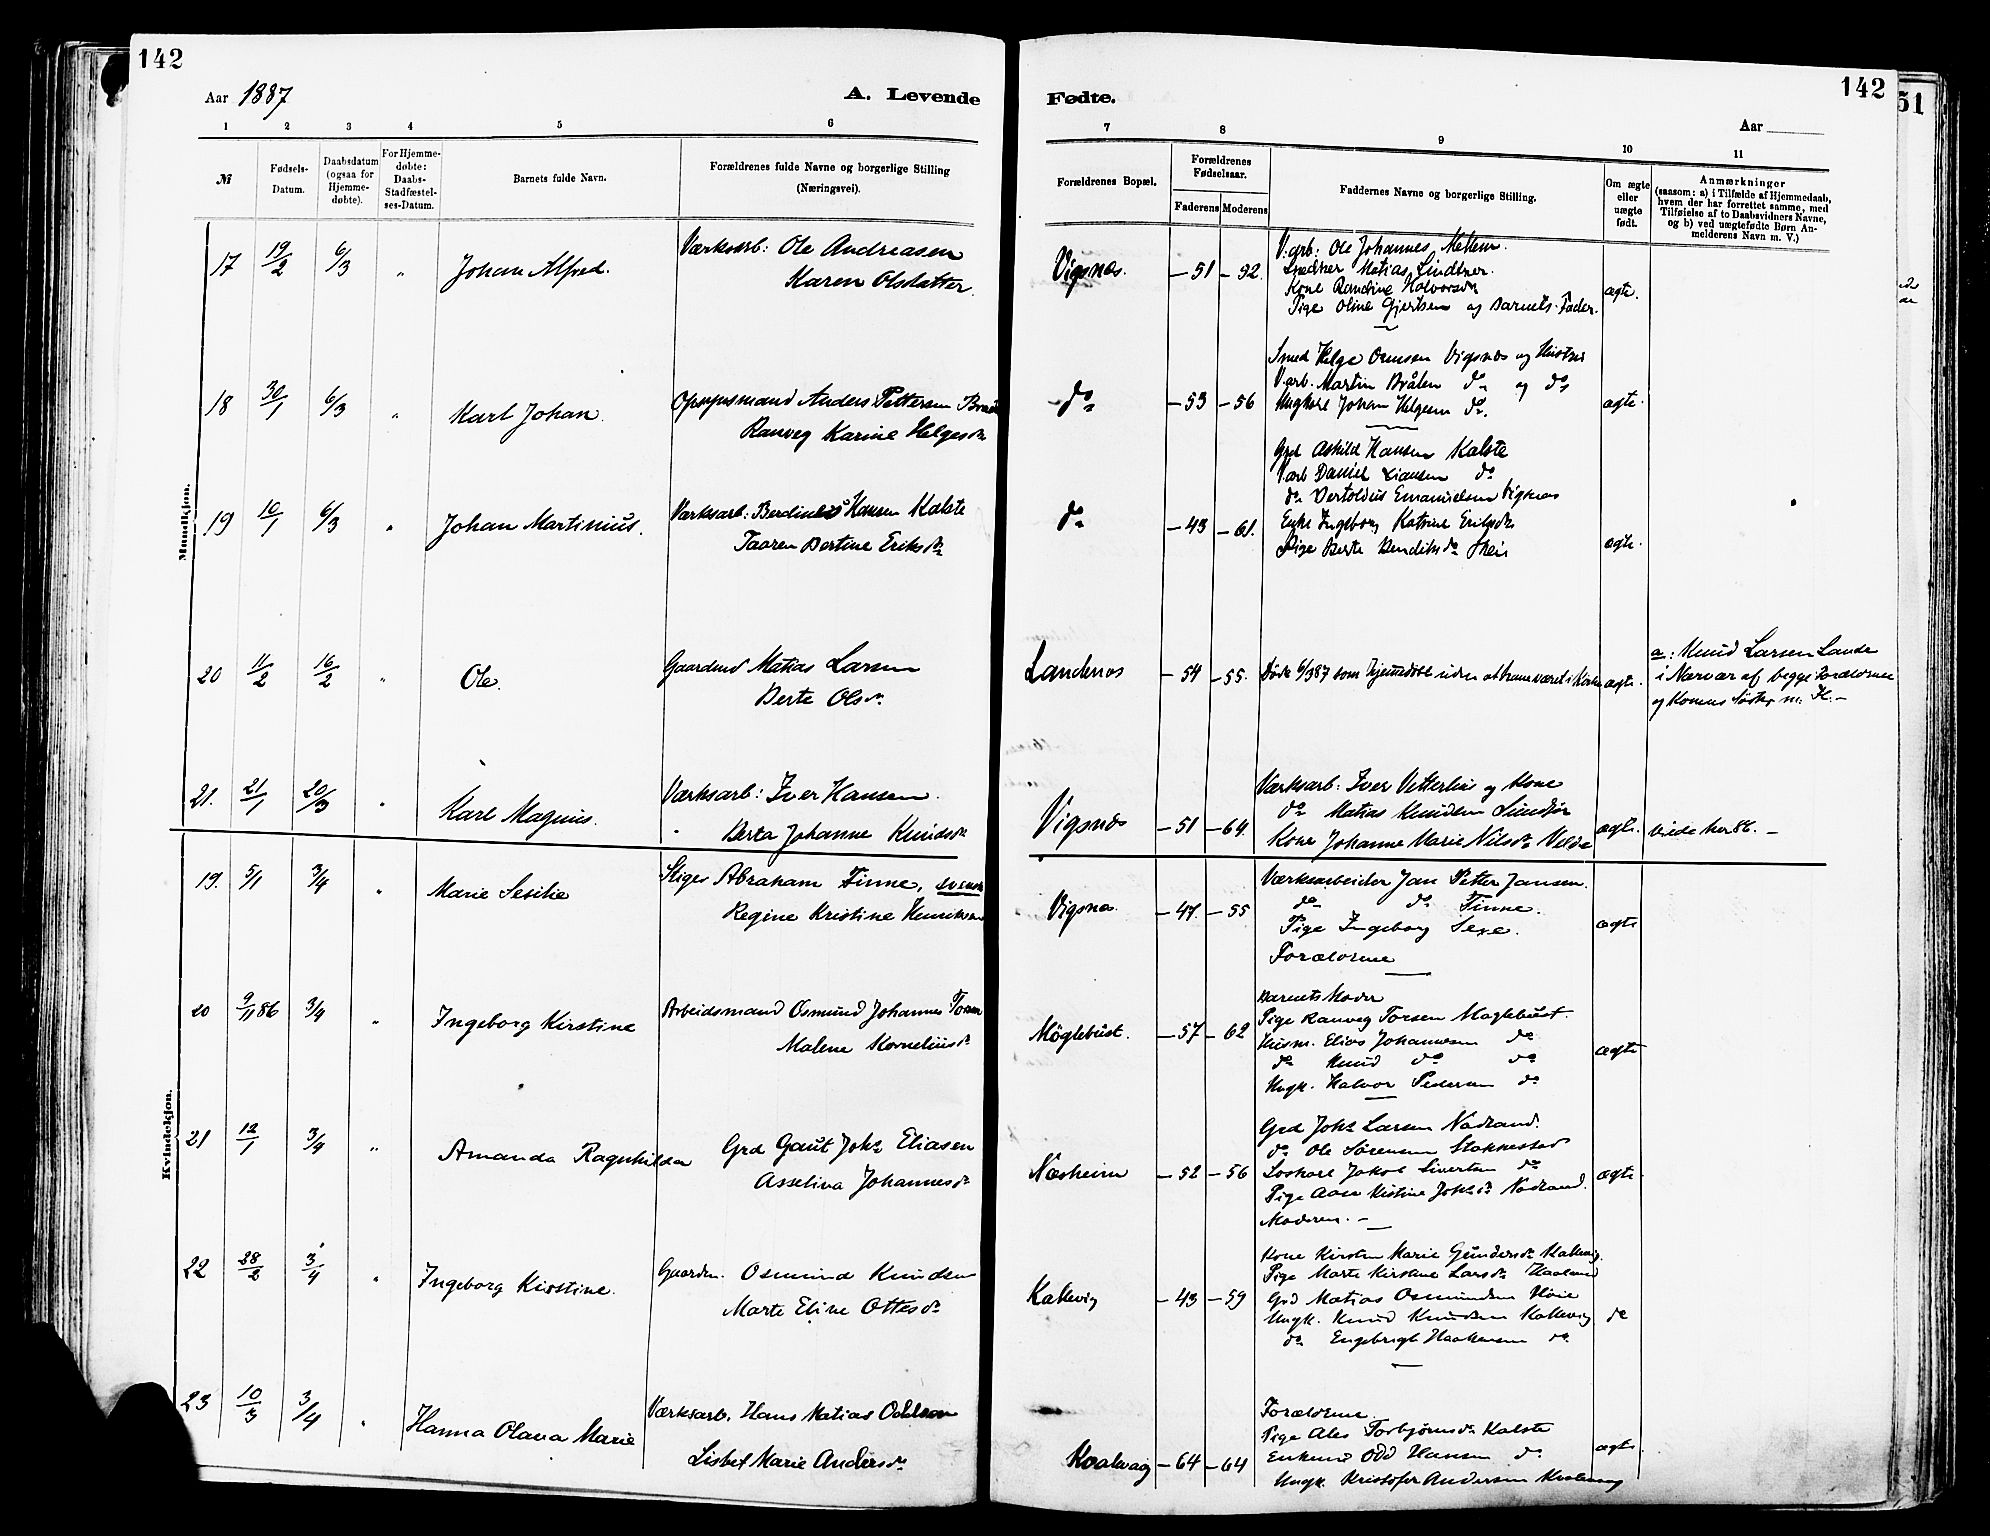 142
142
51
Aar 1887
A. Levende
Fødte.
Aar
1 2 3 4 5 6
7 8 9 10 11
№
Fødsels-
Datum.
Daabsdatum
(ogsaa for
Hjemme-
døbte).
For Hjemme-
døbte:
Daabs-
Stadfæstel-
ses-Datum.
Barnets fulde Navn.
Forældrenes fulde Navne og borgerlige Stilling
(Næringsvei).
Forældrenes Bopæl.
Forældrenes
Fødselsaar.
Faderens Moderens
Faddernes Navne og borgerlige Stilling.
Om ægte
eller
uægte
født.
Anmærkninger
(saasom: a) i Tilfælde af Hjemmedaab,
hvem der har forrettet samme, med
Tilføielse af to Daabsvidners Navne,
og b) ved uægtefødte Børn An-
melderens Navn m. V.)
Mandkjøn.
17 19/2 6/3 " Johan Alfred.
Værksarb: Ole Andreasen
Karen Olsdatter
Vigsnæs. — 51 — 52.
V.arb: Ole Johannes
Snedker Matias Lindtner.
Kone Randine Halvorsdr
Pige Oline Gjertsen og Barnets Fader.
ægte.
18 30/1 6/3 " Karl Johan.
Opsynsmand Anders Pettersen
Ranveg Karine Helgesdr
do — 53 — 56
Smed Helge Osmsen Vigsnæs og Hustru
Varb. Martin Bråten do og do
Ungkarl Johan Helgesen do.
ægte.
19 10/1 6/3 " Johan Martinius.
Værksarb: Berdinius Hansen Kalstø
Taaren Bertine Eriksdr
do — 43 — 61.
Grd Askild Hansen Kalstø
Varb Daniel Hansen do
do Bertoldus Emanuelsen Vigsnæs
Enke Ingeborg Katrine Eriksdr
Pige Berte Bendiksdr
ægte.
20 11/2 16/2 " Ole.
Gaardmd Matias Larsen
Berte Olsdr
Landenæs — 54 — 55.
Døde 6/3 87 som hjemmedøbt uden at have været i Kirken
ægte.
a: Knud Larsen Lande
i Nærvær af begge Forældrene
og Konens Søster m. H. —
21. 21/1 20/3 " Karl Magnus.
Værksarb: Iver Hansen.
Berta Johanne Knudsdr
Vigsnæs — 51 — 64.
Værksarb: Iver Vetterhus og Kone
do Matias Knudsen
Kone Johanne Marie Nilsdr Velde
ægte.
viede her 86. —
Kvindekjøn.
19. 5/1 3/4 " Marie Sesilie
Stiger Abraham Finne, svensk
Regine Kristine
Vigsnæs. — 47. — 55
Værksarbeider Jan Petter Jansen.
do do Finne.
Pige Ingeborg Sexe.
Forældrene
ægte
20 9/11 86 3/4 " Ingeborg Kirstine
Arbeidsmand Osmund Johannes
Malene Korneliusdr
Møglebust. — 57 — 62
Barnets Moder
Pige Ranveg Torsen Møglebust.
Husm. Elias Johannesen do
do Knud do do
Ungk. Halvor Pedersen do
ægte
21 12/1 3/4 " Amanda Ragnhilda
Grd Gaut Johs Eliasen
Asseliva Johannesdr
Næsheim — 52 — 56
Grd Johs Larsen Nødland.
do Ole Sørensen Stakkestad
Løskarl Jakob Sivertsen do
Pige Kistine Johsdr Nødland.
Moderen. —
ægte
22 28/2 3/4 " Ingeborg Kirstine.
Gaardm. Osmund Knudsen
Marte Eline Ottesdr
Kallevig — 43 — 59
Kone Kirsten Marie Gundersdr Kallevig.
Pige Marte Kirstine Larsdr
Grd Matias Osmundsen Høie
Ungk. Knud Knudsen Kallevig
do Engebrigt Haakensen do
do
23 10/3 3/4 " Hanna Olava Marie
Værksarb. Hans Matias Oddsen
Lisbet Marie Andersdr
Kvalevaag — 64 — 64
Forældrene.
Pige Torbjørnsdr Kalstø
Enkemd Odd Hansen do
Ungk. Kristofer Andersen Kvalevaag
ægte